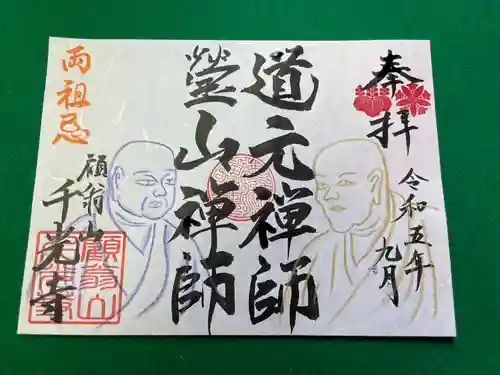 奉拝
令和五年
九月
道元禅師
瑩山禅師
両祖忌
願翁山
千光寺
願翁山